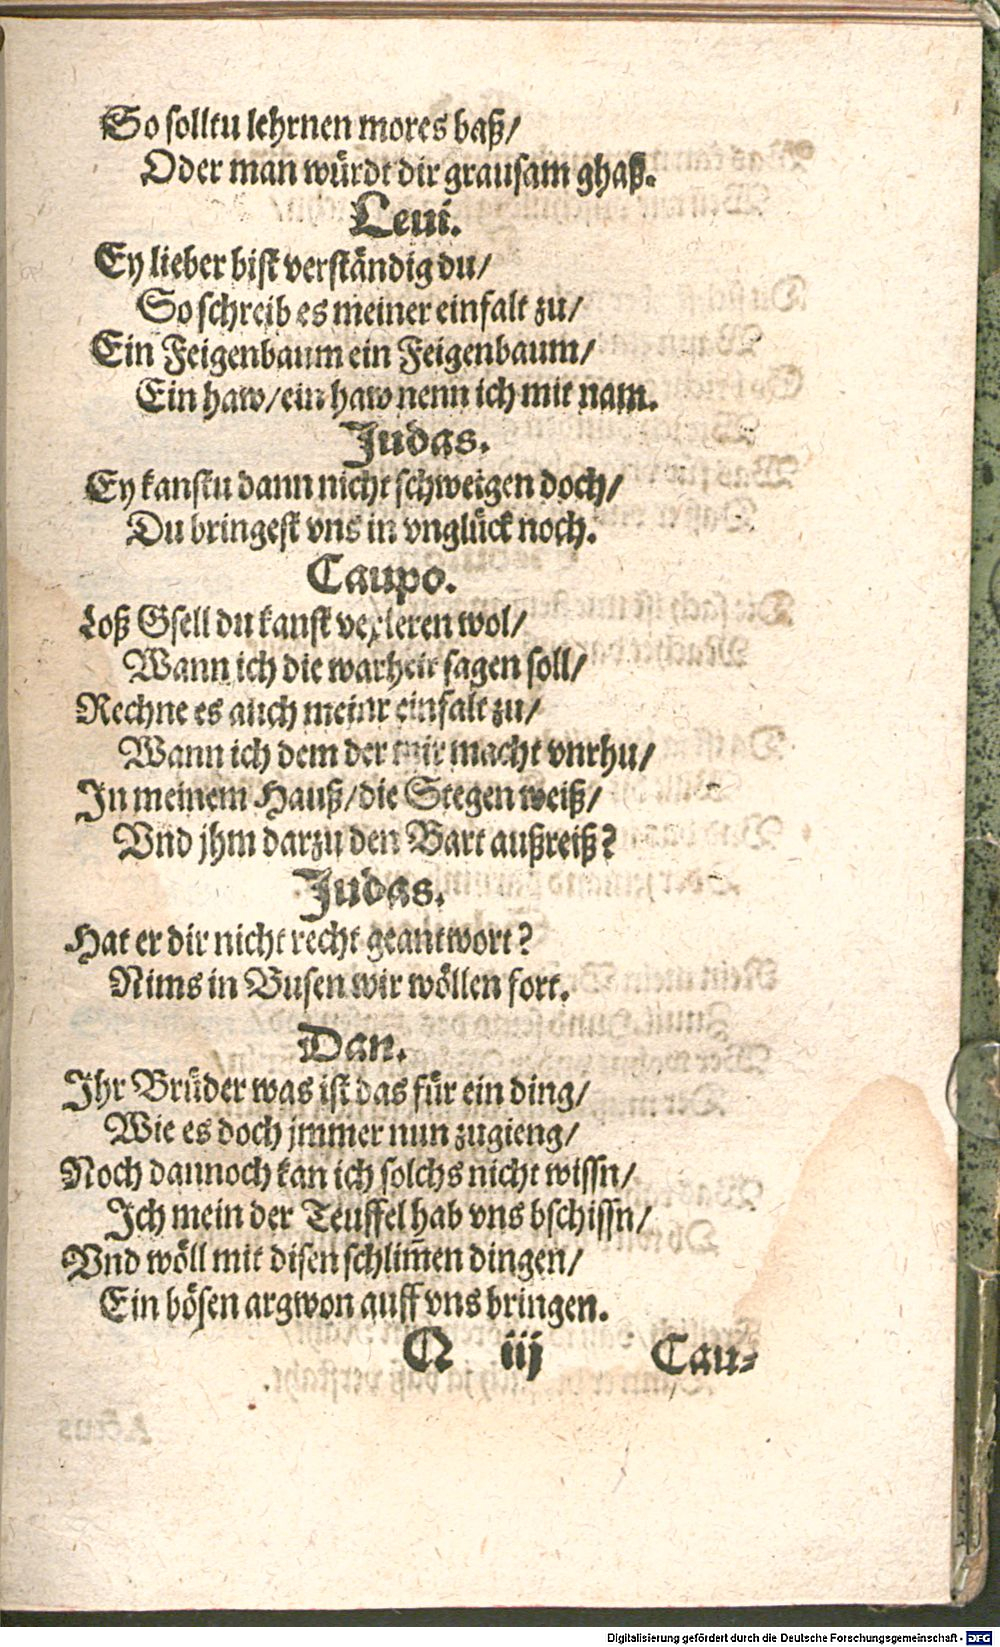 So solltu lehrnen mores baß/
Oder man würdt dir grausam ghaß.
Leui.
Ey lieber bist verständig du/
So schreib es meiner einfalt zu/
Ein Feigenbaum ein Feigenbaum/
Ein haw/ein haw nenn ich mit nam.
Judas.
Ey kanstu dann nicht schweigen doch/
Du bringest vns in vnglück noch.
Caupo.
Loß Gsell du kanst vexieren wol/
Wann ich die warheit sagen soll/
Rechne es auch meinr einfalt zu/
Wann ich dem der mir macht vnrhu/
In meinem Hauß/die Stegen weiß/
Vnd jhm darzu den Bart außreiß?
Judas.
Hat er dir nicht recht geantwort?
Nims in Busen wir wöllen fort.
Dan.
Ihr Brüder was ist das für ein ding/
Wie es doch jmmer nun zugieng/
Noch dannoch kan ich solchs nicht wissn/
Ich mein der Teuffel hab vns bschissn/
Vnd wöll mit disen schlim̄en dingen/
Ein bösen argwon auff vns bringen.
Q iij Cau-
Digitalisierung gefördert durch die Deutsche Forschungsgemeinschaft - DFG